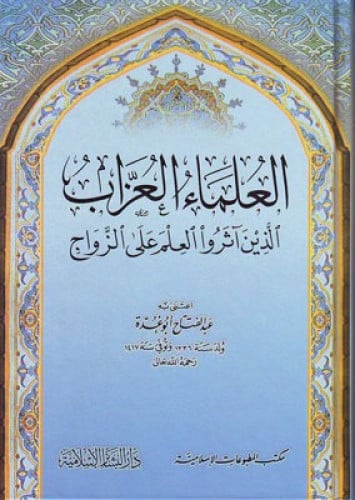 العُلمَاءُ العُزَّابُ
الذينَ آثَرُوا العِلمَ عَلَى الزَّوَاجِ
اعتنى به
عبد الفتاح أبو غدة
ولد سنة ١٣٣٦ وتوفي سنة ١٤١٧
رحمه الله تعالى
مكتب المطبوعات الإسلامية
دار البشائر الإسلامية